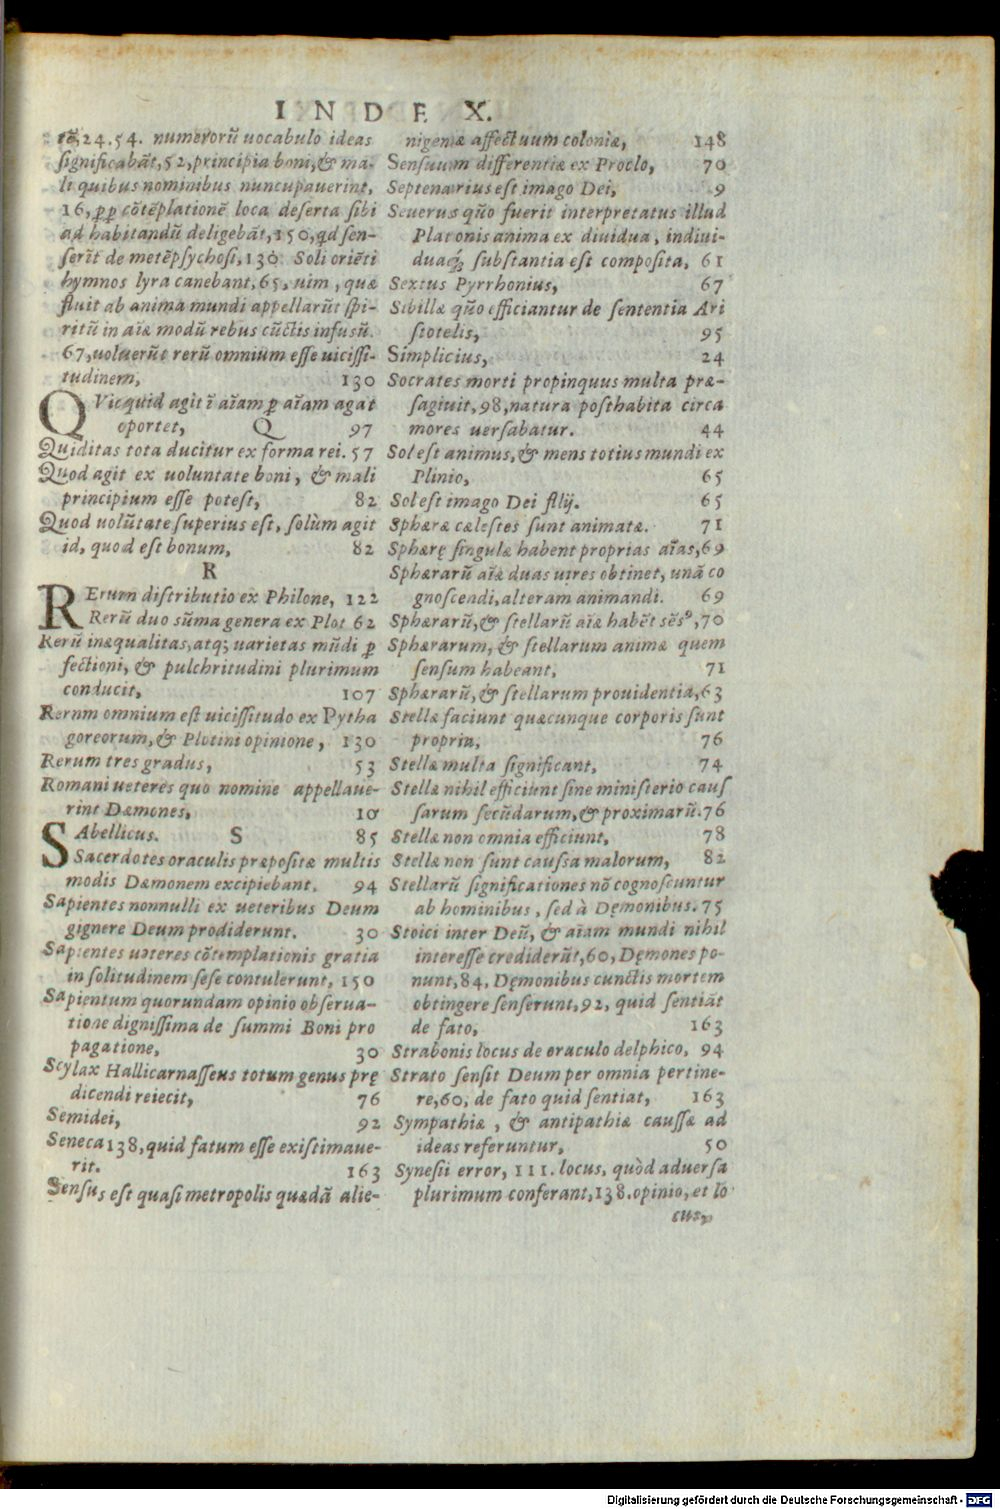 I N D E X.
rẽ, 24.54. numerorũ uocabulo ideas
ſignificabãt, 52, principia boni, & ma-
li quibus nominibus nuncupauerint,
16, ꝓꝑ cõtẽplationẽ loca deſerta ſibi
ad habitandũ deligebãt, 150, qd ſen-
ſerĩt de metẽpſychoſi, 130. Soli oriẽti
hymnos lyra canebant, 65, uim, quæ
fluit ab anima mundi appellarũt ſpi-
ritũ in aĩæ modũ rebus cũctis infusũ.
67, uoluerũt rerũ omnium eſſe uiciſſi-
tudinem, 130
QVicquid agit ĩ aĩam ꝑ aĩam agat
oportet, Q 97
Quiditas tota ducitur ex forma rei. 57
Quod agit ex uoluntate boni, & mali
principium eſſe poteſt, 82
Quod uolũtate ſuperius eſt, ſolùm agit
id, quod eſt bonum, 82
R
RErum diſtributio ex Philone, 122
Rerũ duo sũma genera ex Plot 62
Rerũ inæqualitas, atq; uarietas mũdi ꝑ
fectioni, & pulchritudini plurimum
conducit, 107
Rernm omnium eſt uiciſſitudo ex Pytha
goreorum, & Plotini opinione, 130
Rerum tres gradus, 53
Romani ueteres quo nomine appellaue-
rint Dæmones, 10
SAbellicus. S 85
Sacerdotes oraculis præpoſitæ multis
modis Dæmonem excipiebant. 94
Sapientes nonnulli ex ueteribus Deum
gignere Deum prodiderunt. 30
Sapientes ueteres cõtemplationis gratia
in ſolitudinem ſeſe contulerunt, 150
Sapientum quorundam opinio obſerua-
tione digniſſima de ſummi Boni pro
pagatione, 30
Scylax Hallicarnaſſeus totum genus prę
dicendi reiecit, 76
Semidei, 92
Seneca 138, quid fatum eſſe exiſtimaue-
rit. 163
Senſus eſt quaſi metropolis quædã alie-
nigenæ affectuum coloniæ, 148
Senſuum differentiæ ex Proclo, 70
Septenarius eſt imago Dei, 9
Seuerus qũo fuerit interpretatus illud
Platonis anima ex diuidua, indiui-
duaq́; ſubſtantia eſt compoſita, 61
Sextus Pyrrhonius, 67
Sibillæ qũo efficiantur de ſententia Ari
ſtotelis, 95
Simplicius, 24
Socrates morti propinquus multa præ-
ſagiuit, 98, natura poſthabita circa
mores uerſabatur. 44
Sol eſt animus, & mens totius mundi ex
Plinio, 65
Sol eſt imago Dei filij. 65
Sphæræ cæleſtes ſunt animatæ. 71
Sphærę ſingulæ habent proprias aĩas, 69
Sphærarũ aĩæ duas uires obtinet, unã co
gnoſcendi, alteram animandi. 69
Sphærarũ, & ſtellarũ aĩæ habẽt sẽsº, 70
Sphærarum, & ſtellarum animæ quem
ſenſum habeant, 71
Sphærarũ, & ſtellarum prouidentia, 63
Stellæ faciunt quæcunque corporis ſunt
propria, 76
Stellæ multa ſignificant, 74
Stellæ nihil efficiunt ſine miniſterio cauſ
ſarum ſecũdarum, & proximarũ. 76
Stellæ non omnia efficiunt, 78
Stellæ non ſunt cauſſa malorum, 82
Stellarũ ſignificationes nõ cognoſcuntur
ab hominibus, ſed à Dęmonibus. 75
Stoici inter Deũ, & aĩam mundi nihil
intereſſe crediderũt, 60, Dęmones po-
nunt, 84, Dęmonibus cunctis mortem
obtingere ſenſerunt, 92, quid ſentiãt
de fato, 163
Strabonis locus de oraculo delphico, 94
Strato ſenſit Deum per omnia pertine-
re, 60, de fato quid ſentiat, 163
Sympathiæ, & antipathiæ cauſſæ ad
ideas referuntur, 50
Syneſii error, 111. locus, quòd aduerſa
plurimum conferant, 138. opinio, et lo
cus,
Digitalisierung gefördert durch die Deutsche Forschungsgemeinschaft - DFG